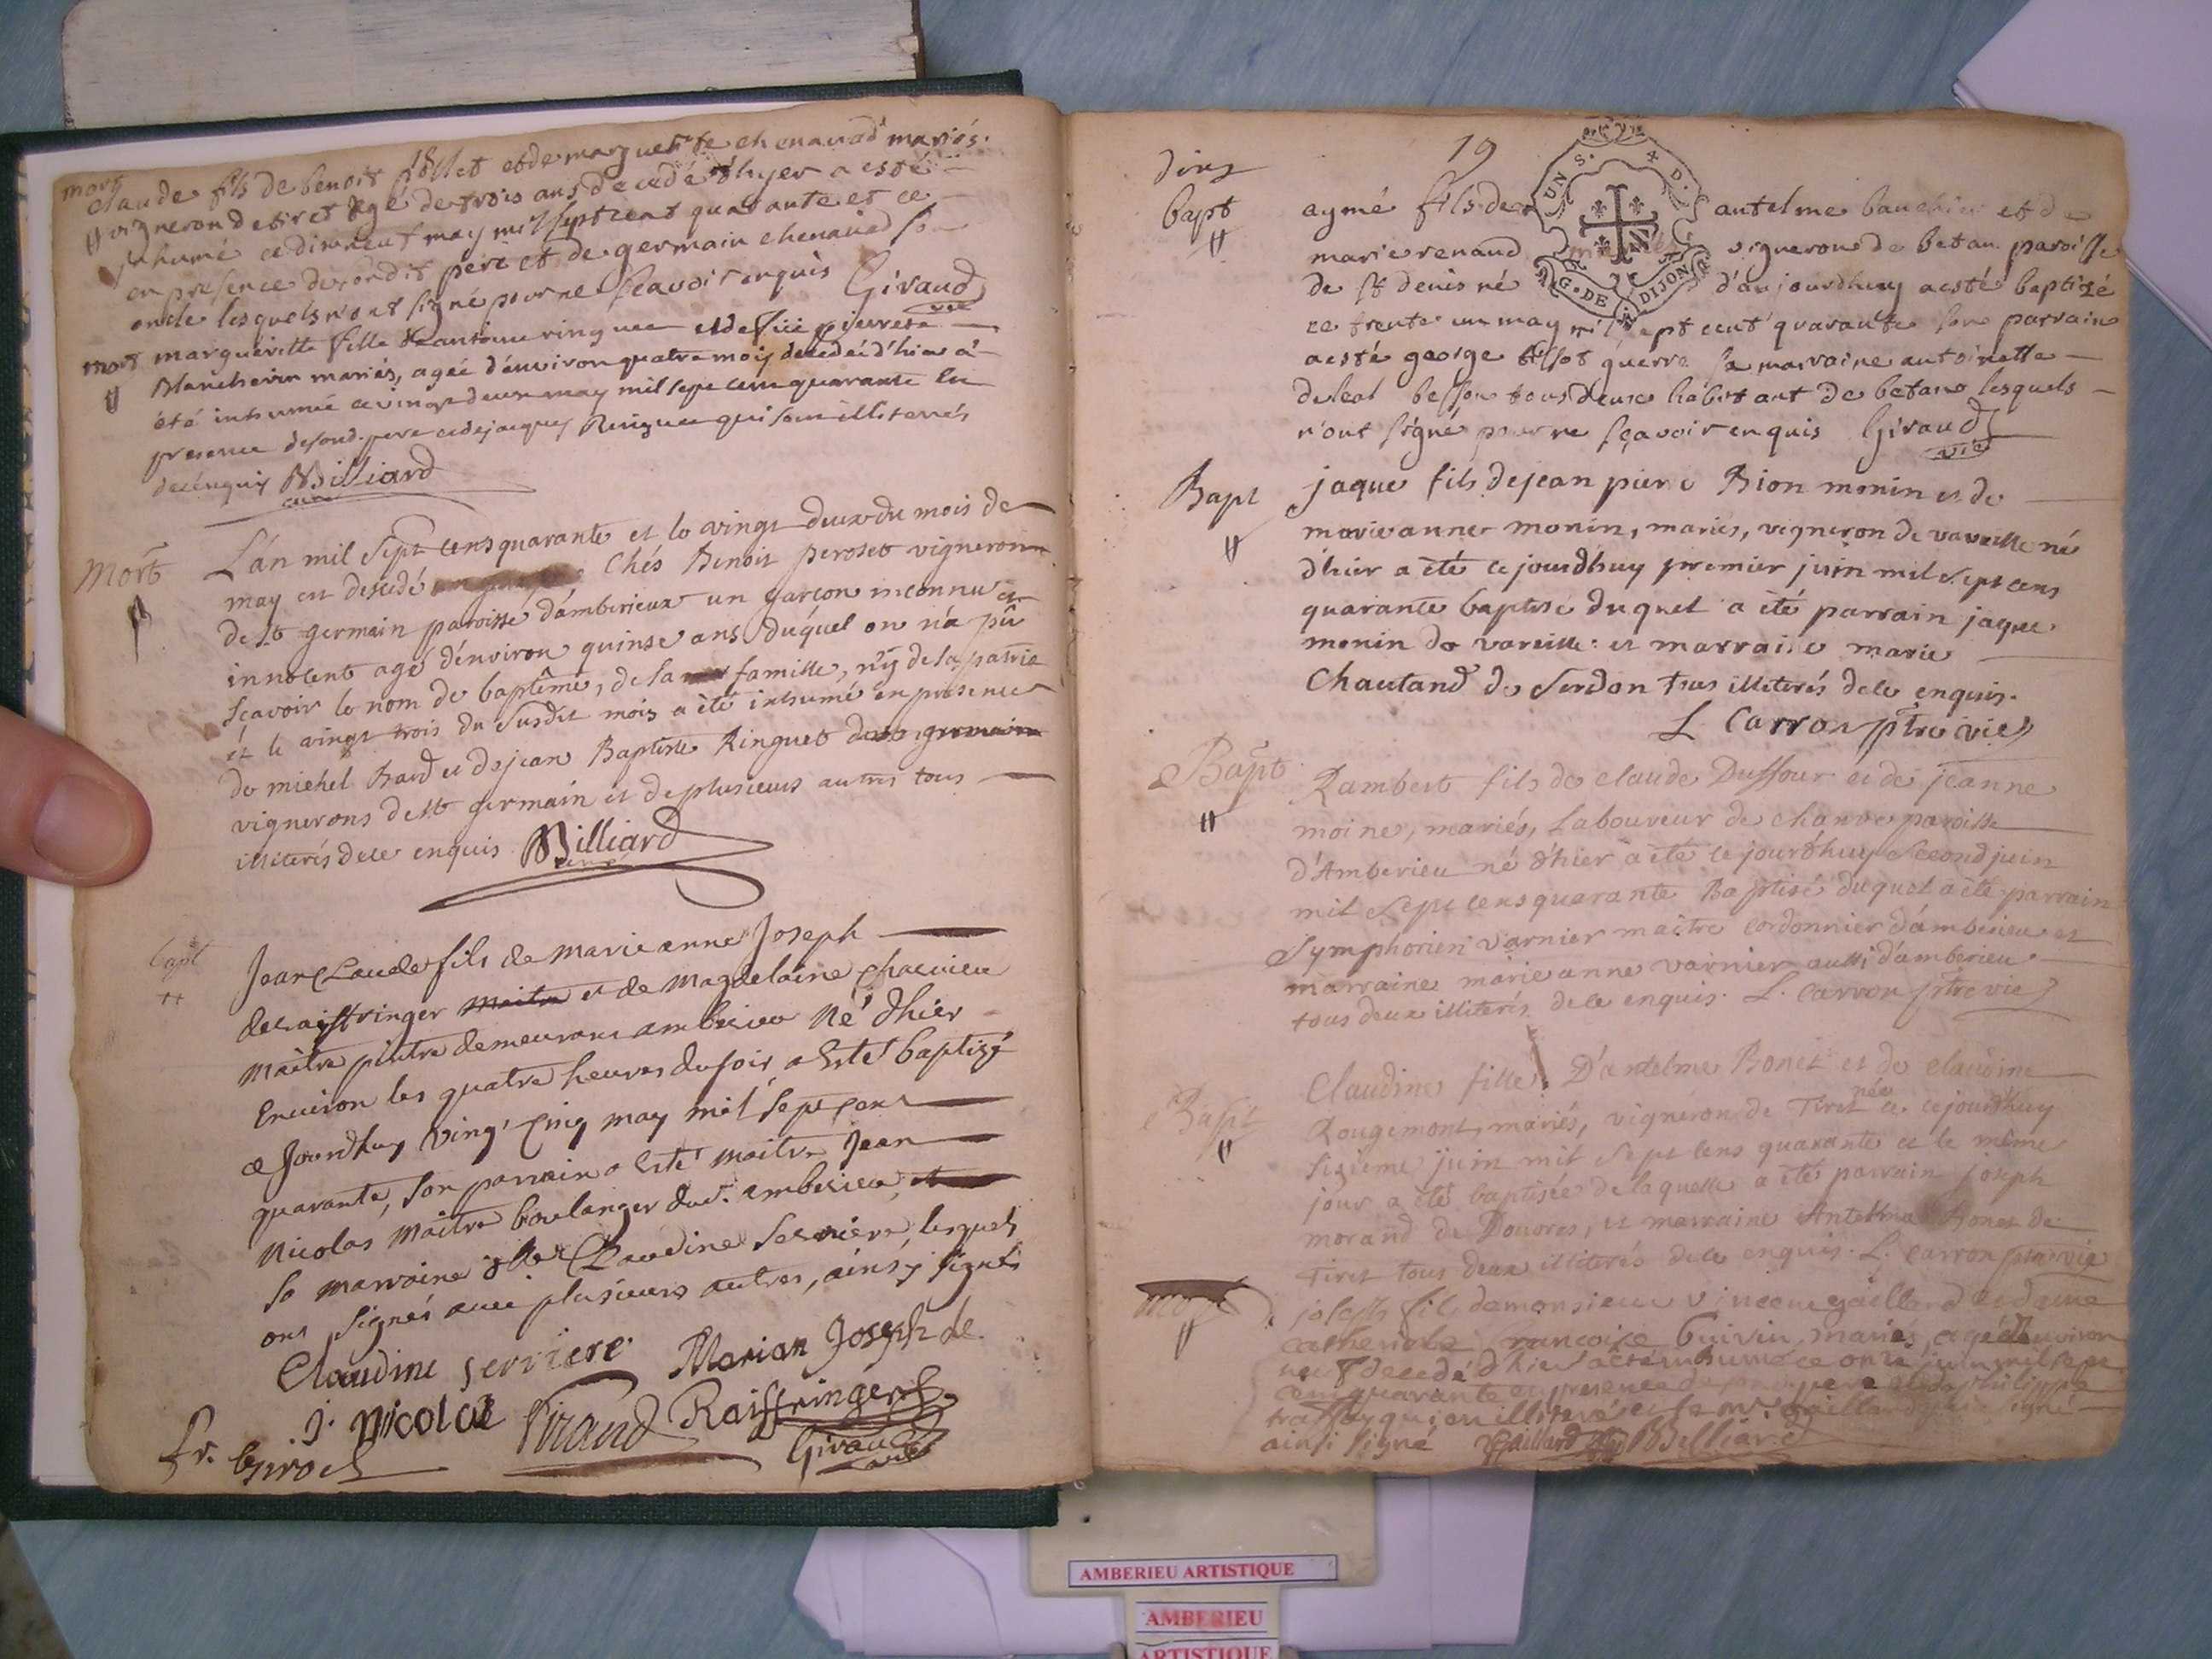 mort
claude fils de benoit et de marguerite chenavad mariés.
vigneron de tiret agé de trois ans decedé d'hyer a esté
inhumé ce dixneuf may mil sept cent quarante et ce
en presence de sondit pere et de germain chenavad son
oncle lesquels n'ont signé pour ne sçavoir enquis Giraud
vic
mort
marguerite fille de antoine ringuet et de
Blanchevin mariés, agée d'environ quatre mois decedée d'hier à
été inhumée ce vingt deux may mil sept cent quarante en
presence de sond. pere et de jacques Ringuet qui sont illiterés
de ce enquis Billiard
curé
Mort
L'an mil sept cens quarante et le vingt deux du mois de
may est decedé chés Benoit peroset vigneron
de St germain paroisse d'amberieux un garçon inconnu et
innocent agé d'environ quinse ans duquel on n'a pû
sçavoir le nom de baptême, de sa famille, n'y de la patrie
et le vingt trois du susdit mois a été inhumé en presence
de michel Bard et de jean Baptiste Ringuet de st germain
vignerons de St germain et de plusieurs autres tous
illiterés de ce enquis Billiard
curé
bapt
Jean Claude fils de Marie anne Joseph
de raiffringer maitre et de Magdelaine
maître pintre demeurant amberieu Né d'hier
Environ les quatre heures du soir a Esté baptizé
ce Jourdhuy Vingt Cinq may mil sept cent
quarante, son parrain a Esté maitre Jean
Nicolas Maitre boulanger dud. amberieu, et
sa marraine dlle Claudine Serriere, lesquels
ont signés avec plusieurs autres, ainsy signés
Claudine serriere Marian Joseph de
J. Nicolas Giraud Raiffringer
fr. Giraud
vic
19
bapt
aymé fils de antelme et de
marie renaud vigneron de betan paroisse
de st denis né d'aujourdhuy a esté baptizé
ce trente un may mil sept cent quarante son parrain
a esté george guerre sa marraine antoinette
tous deux habitant de betans lesquels
n'ont signé pour ne sçavoir enquis Giraud
vic
Bapt
jaque fils de jean piere Bion monin et de
marie anne monin, mariés, vigneron de vareille né
d'hier a été ce jourdhuy premier juin mil sept cens
quarante baptisé duquel a été parrain jaque
monin de vareille: et marraine marie
Chautand de Serdon tous illiterés de ce enquis.
L Carron ptre vic
Bapt
Rambert fils de claude Duffour et de jeanne
moine, mariés, Laboureur de paroisse
d'Amberieu né d'hier a été ce jourdhuy second juin
mil sept cens quarante Baptisé duquel a été parrain
Symphorien varnier maitre cordonnier d'amberieu et
marraine marie anne varnier aussi d'amberieu
tous deux illiterés de ce enquis. L. Carron ptre vic
Bapt
Claudine fille D'antelme Bonet et de claudine
Rougemont, mariés, vigneron de Tiret née ce jourdhuy
sixieme juin mil sept cens quarante et le même
jour a été baptisée de laquelle a été parrain joseph
morand de Douvres, et marraine Bonet de
Tiret tous deux illiterés de ce enquis. L. Carron ptre vic
mort
joseph fils de monsieur vincent gaillard et de dame
catherine francoise guivin, mariés, agé d'environ
decedé d'hier a été inhumé ce onze juin mil sept
cent quarante en presence de son pere et de philippe
qui est illiteré et le sr gaillard
ainsi signé Gaillard Billiard
AMBERIEU ARTISTIQUE
AMBERIEU
ARTISTIQUE